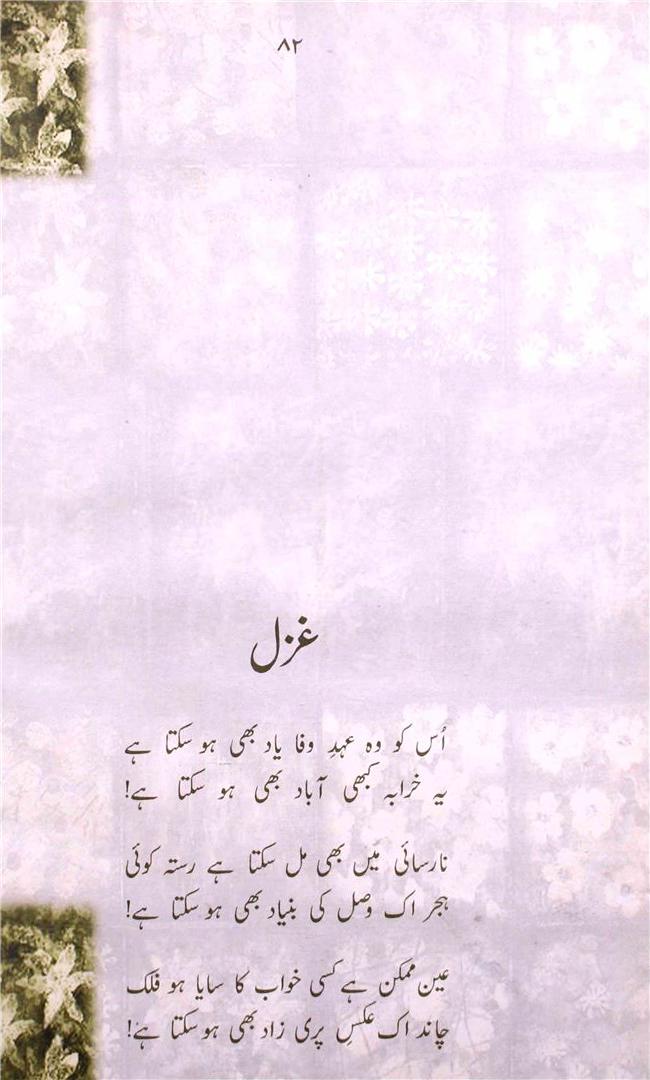 ۸۲
غزل
اُس کو وہ عہدِ وفا یاد بھی ہو سکتا ہے
یہ خرابہ کبھی آباد بھی ہو سکتا ہے!
نارسائی میں بھی مل سکتا ہے رستہ کوئی
ہجر اک وصل کی بنیاد بھی ہو سکتا ہے!
عین ممکن ہے کسی خواب کا سایا ہو فلک
چاند اک عکسِ پری زاد بھی ہو سکتا ہے!